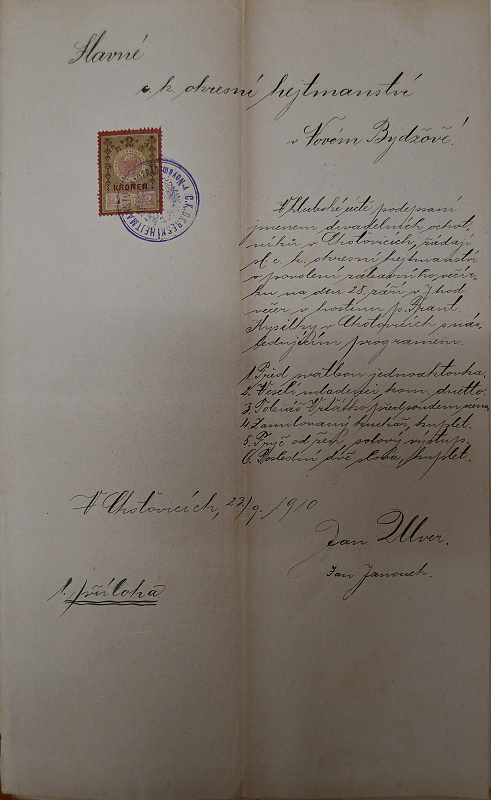 Slavné
c. k. okresní hejtmanství
v Novém Bydžově!
2
KRONEN
V hluboké úctě podepsaní
jmenem divadelních ochot-
níků v Chotovicích, žádají
sl. c. k. okresní hejtmanství
o povolení zábavního večír-
ku na den 25. září v 7 hod
večer v hostinci p. Frant.
Kysilky v Chotovicích s násle-
dujícím programem.
1. Před svatbou jednoaktovka.
2. Veselí mládenci, kom. duetto.
3. Tobiáš před soudem scéna
4. Zamilovaný kuchař, kuplet.
5. Pryč od žen, solový výstup.
6. Poslední dvě slova, kuplet.
V Chotovicích, 22/9. 1910
Jan Ulver.
Jan Janouch.
1. příloha